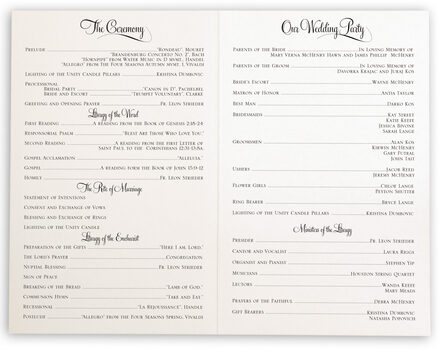 The Ceremony
Prelude "Rondeau", Mouret
"Brandenburg Concerto No. 2", Bach
"Hornpipe" from Water Music in D Myme, Handel
"Allegro" from The Four Seasons Autumn Myme, Vivaldi
Lighting of the Unity Candle Pillars Kristina Dumbovic
Processional
Bridal Party "Canon in D", Pachelbel
Bride and Escort "Trumpet Voluntary" Clarke
Greeting and Opening Prayer Fr. Leon Strieder
Liturgy of the Word
First Reading A reading from the Book of Genesis 2:18-24
Responsorial Psalm "Blest Are Those Who Love You"
Second Reading A reading from the first Letter of
Saint Paul to the Corinthians 12:31-13:8a
Gospel Acclamation "Alleluia"
Gospel A reading form the Book of John 15:9-12
Homily Fr. Leon Strieder
The Rite of Marriage
Statement of Intentions
Consent and Exchange of Vows
Blessing and Exchange of Rings
Lighting of the Unity Candle
Liturgy of the Eucharist
Preparation of the Gifts "Here I am, Lord"
The Lord's Prayer Congregation
Nuptial Blessing Fr. Leon Strieder
Sign of Peace
Breaking of the Bread "Lamb of God"
Communion Hymn "Take and Eat"
Recessional "La Rejouissance", Handel
Postlude "Allegro" from The Four Seasons Spring, Vivaldi
Our Wedding Party
Parents of the Bride In Loving Memory of
Mary Verna McHenry Hawn and James Phillip McHenry
Parents of the Groom In Loving Memory of
Davorka Krajac and Juraj Kos
Bride's Escort Wayne McHenry
Matron of Honor Anita Taylor
Best Man Darko Kos
Bridesmaids Kay Street
Katie Keefe
Jessica Bivone
Sarah Lange
Groomsmen Alan Kos
Kirwin McHenry
Gary Futral
John Tait
Ushers Jacob Reed
Jeremy McHenry
Flower Girls Chloe Lange
Peyton Shutter
Ring Bearer Bryce Lange
Lighting of the Unity Candle Pillars Kristina Dumbovic
Ministers of the Liturgy
Presider Fr. Leon Strieder
Cantor and Vocalist Laura Rigga
Organist and Pianist Stephen Yip
Musicians Houston String Quartet
Lectors Wanda Keefe
Mary Meads
Prayers of the Faithful Debra McHenry
Gift Bearers Kristina Dumbovic
Natasha Popovich